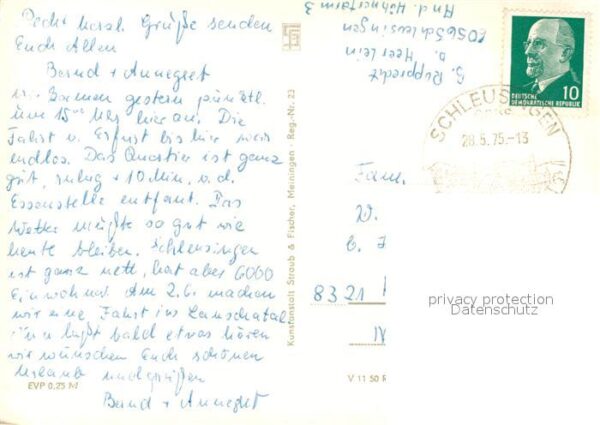 Recht herzl. Grüße senden
Euch Allen
Bernd + Annegret
wir kamen gestern pünktl.
um 15 Uhr hier an. Die
Fahrt v. Erfurt bis hier war
endlos. Das Quartier ist ganz
gut, ruhig + 10 Min. v. d.
Essenstelle entfernt. Das
Wetter müßte so gut wie
heute bleiben. Schleusingen
ist ganz nett, hat aber 6000
Einwohner. Am 2.6. machen
wir eine Fahrt ins
laßt bald etwas hören
wir wünschen Euch schönen
Urlaub und grüßen
Bernd + Annegret
EVP 0,25 M
Kunstanstalt Straub & Fischer, Meiningen - Reg.-Nr. 23
V 11 50
G. Rupprecht
b. Heerlein
6056 Schleusingen
An d. Hühnerfarm 3
10
DEUTSCHE
DEMOKRATISCHE REPUBLIK
SCHLEUSINGEN
28.5.75-13
Fam.
W.
8321
privacy protection
Datenschutz